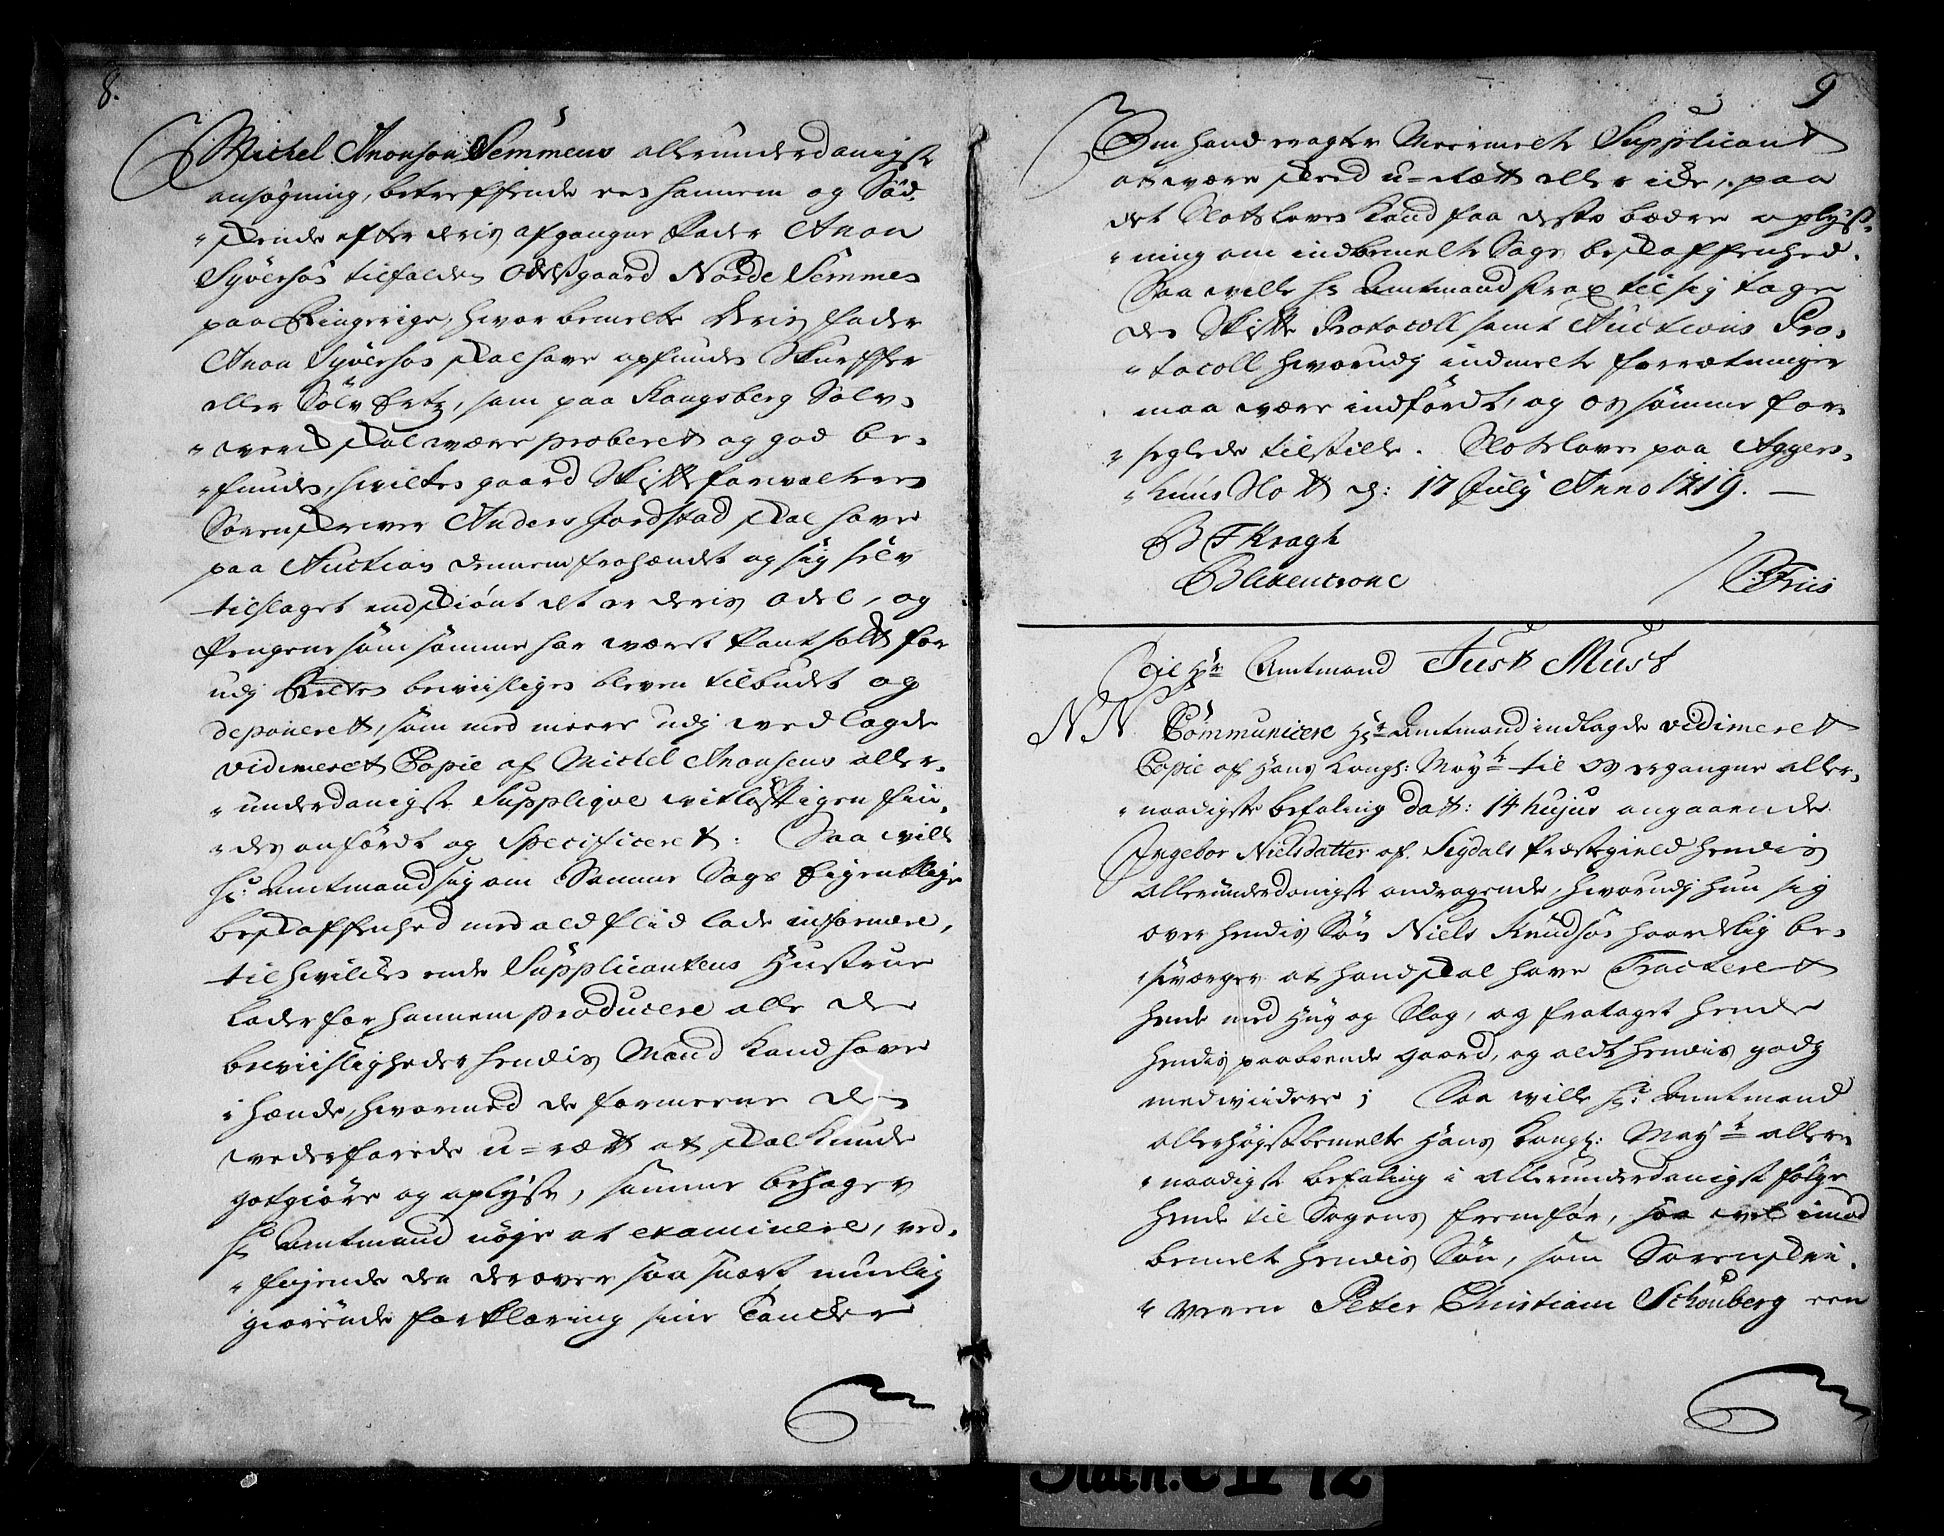 8.
Michel Anonsøn Semmens allerunderdanigste
ansøgning, betreffende een hannem og Sød-
skende efter deris afgangne Fader Anon
Syversøs tilfalden Odelsgaard Nordre Semmes
paa Ringerige, hvor bemelte deris fader
Anon Syversøs skal have opfundes Skurffer
eller Sølv Ertz, som paa Kongsberg Sølv-
verck skal være proberet og god be-
funden, hvilken gaard Skifteforvalteren
Sorenskriver Anders Jordstad skal have
paa Auction dennem frahændet og sig selv
tilslaget endskiønt det er deris odel, og
Pengene som samme har været Pantsatt for
udj Retten beviisligen bleven tilbudet og
deponerett, som med meere udj vedlagde
vidimeret Copie af Michel Anonsens aller-
underdanigste Supplique vitløftigen fin-
des anfördt og Specificeret: Saa ville
Hr. Amtmand sig om Samme Sags Eigentlige
beskaffenhed med ald flid lade informere,
til hvilcken ende Supplicantens Hustrue
lader for hannem producere alle de
beviisligheder hendis Mand kand have
i hænde, hvormed de formeene den
vederfarede u-rætt at skal kunde
gotgiøre og oplyse, samme behager
Hr Amtmand nøje at examinere, ved-
føjende den derover saa snart muelig
giørende forklaring sine Tancker
9
Om hand eragter Meermelte Supplicant
at være skeed u-rætt eller icke, paa
det Slotsloven kand faa desto bedre oplys-
ning om indbemelte Sags beskaffenhed.
Saa ville Hr Amtmand strax til sig tage
den Skifte Protocoll samt Auctions Pro-
tocoll hvorudj indmelte forretninger
maa være indfördt, og os samme for-
seglede tilstille. Slotsloven paa Aggers-
huus Slott d: 17 July Anno 1719. —
B T Kragh
Blixencrone
C Friis
Til Hr. Amtmand Just Must
NN. Communicere Hr. Amtmand indlagde vidimeret
Copie af Hans Kongl: Mayts til os ergangne aller-
naadigste befaling datt: 14 hujus angaaende
Ingebor Nielsdatter af Sigdals Præstegield hendis
allerunderdanigste andragende, hvorudj hun sig
over hendis Søn Niels Knudsøs haardelig be-
sværger at hand skal have Tracteret
hende med Hug og Slag, og frataget hende
hendis paaboende gaard, og aldt hendis godz
med viidere; Saa ville Hr. Amtmand
allerhøyst bemelte Hans Kongl: Mayts aller-
naadigste befaling i allerunderdanigst følge
hende til Sagens fremför, saa vel imod
bemelt hendis Søn, som Sorenskri-
veren Peter Christian Schouberg een
Stath. C II 12